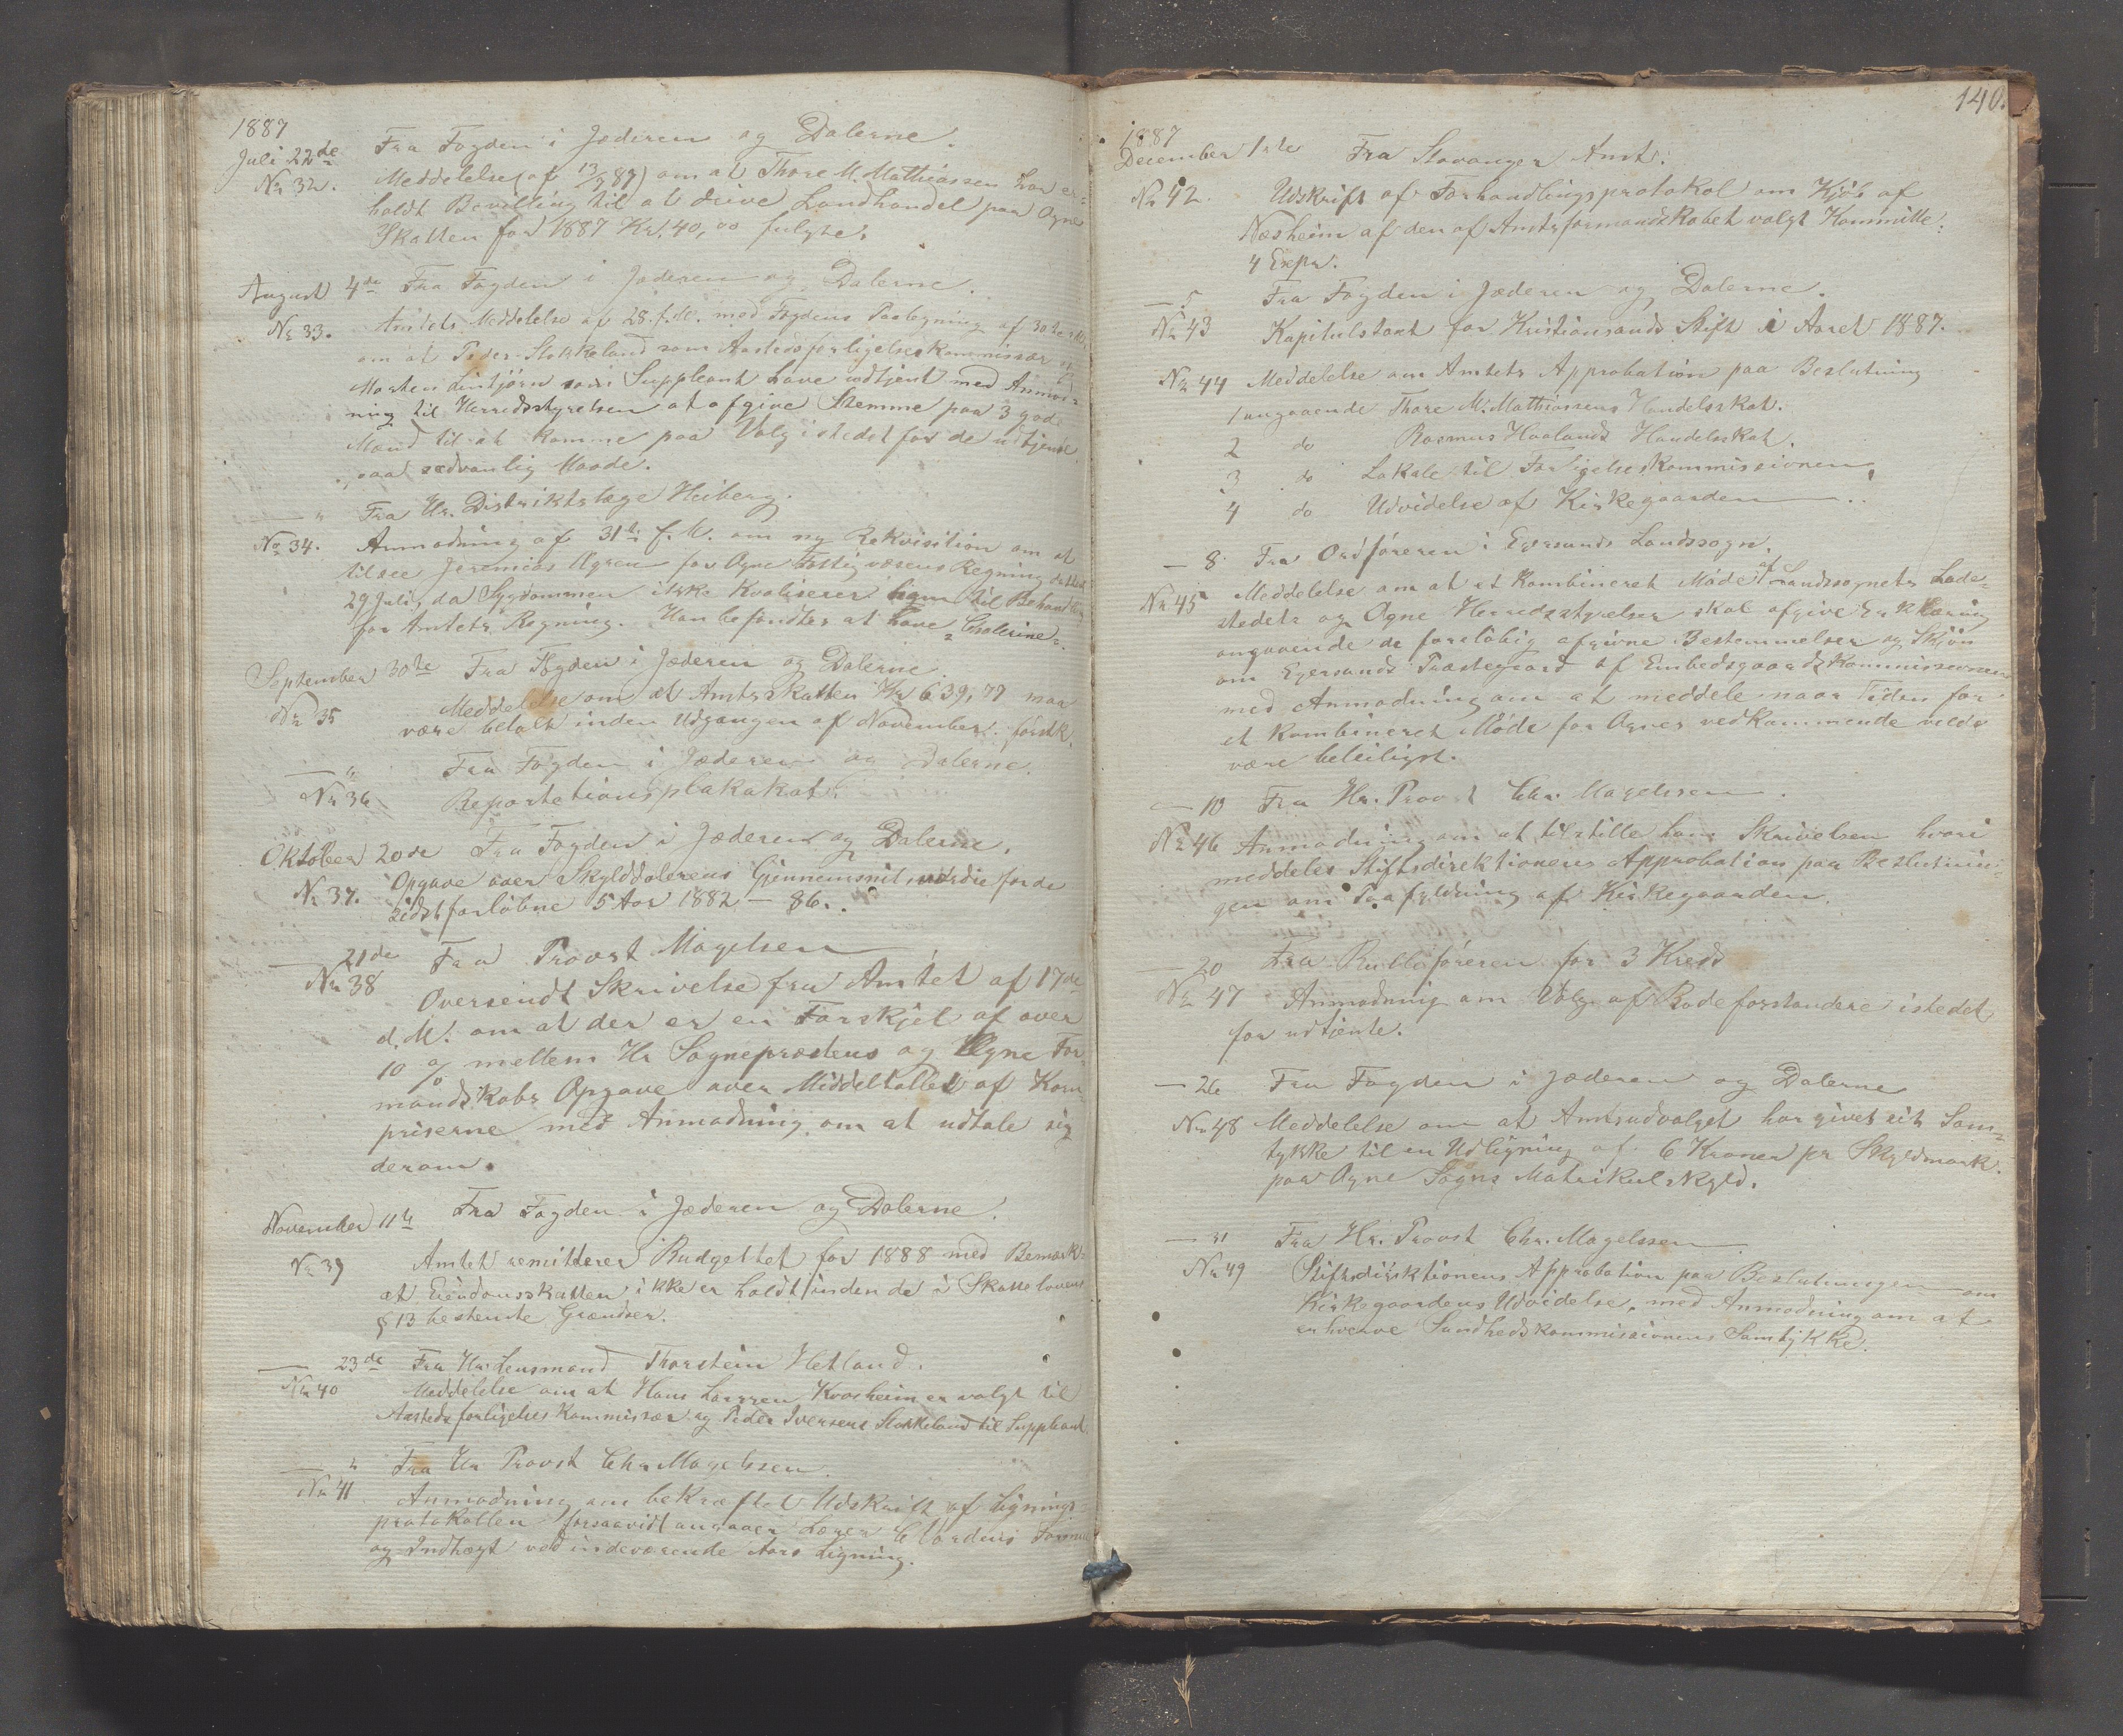 1887
Juli 22de Fra Fogden i Jæderen og Dalerne.
No 32. Meddelelse (af 13/7 87) om at Thore M. Mathiassen har er=
holdt Bevilling til at drive Landhandel paa Ogne
Skatten for 1887 Kr. 40,00 fulgte.
August 4de Fra Fogden i Jæderen og Dalerne.
No 33. Amtets Meddelelse af 28. f. M. med Fogdens Paategning af 30te s. M.
om at Peder Stokkeland som Aastedsforligelseskommissær og
Morten Lintjørn som Suppleant have udtjent med Anmod=
ning til Herredsstyrelsen at afgive Stemme paa 3 gode
Mænd til at komme paa Valg istedet for de udtjente
paa sædvanlig Maade.
— " Fra Hr. Distriktslæge Heiberg.
No 34. Anmodning af 31te f. M. om ny Rekvisition om at
tilsee Jeremias Ogren for Ogne Fattigvæsens Regning
29 Juli, da Sygdommen ikke Kvaliserer ham til Behandling
for Amtets Regning. Han befindtes at have "Cholerine".
September 30te Fra Fogden i Jæderen og Dalerne
No 35 Meddelelse om at Amtsskatten Kr 639,77 maa
være betalt inden Udgangen af November førstk.
— " Fra Fogden i Jæderen og Dalerne.
No 36 Repartetionsplakakat.
Oktober 20de Fra Fogden i Jæderen og Dalerne.
No 37. Opgave over Skylddalerens Gjennemsnitsværdie for de
sidstforløbne 5 Aar 1882 — 86.
— 21de Fra Provst Magelsen
No 38 Oversendt Skrivelse fra Amtet af 17de
d. M. om at der er en Forskjel af over
10 % mellem Hr Sognepræstens og Ogne For=
mandskabs Opgave over Middeltallet af Korn=
priserne med Anmodning om at udtale sig
derom.
November 11te Fra Fogden i Jæderen og Dalerne.
No 39 Amtet remitterer Budgettet for 1888 med Bemærk=
at Eiendomsskatten ikke er holdt inden de i Skattelovens
§ 13 bestemte Grændser.
— 23de Fra Hr. Lensmand Thorstein Hetland.
No 40 Meddelelse om at Hans Larssen Kvasheim er valgt til
Aastedsforligelseskommissær og Peder Iversen Stokkeland til Suppleant.
— " Fra Hr Provst Chr. Magelssen.
No 41 Anmodning om bekræftet Udskrift af Lignings=
protokollen forsaavidt angaaer Lærer C Vardens Formue
og Indtægt ved indeværende Aars Ligning.
140.
1887
December 1ste Fra Stavanger Amt.
No 42. Udskrift af Forhandlingsprotokol om Kjøb af
Næsheim af den af Amtsformandskabet valgt Kommitte:
4 Expr.
— 5 Fra Fogden i Jæderen og Dalerne.
No 43 Kapitulstaxt for Kristiansands Stift i Aaret 1887.
No 44 Meddelelse om Amtets Approbation paa Beslutning
1 angaaende Thore M. Mathiassens Handelsskat.
2 do Rasmus Haalands Handelsskat.
3 do Lokale til Forligelseskommissionen.
4 do Udvidelse af Kirkegaarden —
— 8. Fra Ordføreren i Egersunds Landssogn.
No 45 Meddelelse om at et kombineret Møde af Landssognets Lade=
stedets og Ogne Herredsstyrelser skal afgive Erklæring
angaaende de foreløbig afgivne Bestemmelser og Skjøn
om Egersunds Præstegaard af Embedsgaardskommissionen
med Anmodning om at meddele naar Tiden for
et kombineret Møde for Ognes vedkommende vilde
være beleiligst.
— 10 Fra Hr. Provst Chr. Magelssen.
No 46 Anmodning om at tilstille ham Skrivelsen hvori
meddeles Stiftsdirektionens Approbation paa Beslutnin=
gen om Paafyldning af Kirkegaarden.
— 20 Fra Rulleføreren for 3 Kreds
No 47 Anmodning om Valg af Rodeforstandere istedet
for udtjente.
— 26 Fra Fogden i Jæderen og Dalerne
No 48 Meddelelse om at Amtsudvalget har givet sit Sam=
tykke til en Udligning af 6 Kroner pr Skyldmark.
paa Ogne Sogns Matrikulskyld.
— 31 Fra Hr. Provst Chr. Magelssen.
No 49 Stiftsdirektionens Approbation paa Beslutningen om
Kirkegaardens Udvidelse, med Anmodning om at
erhverve Sundhedskommissionens Samtykke.